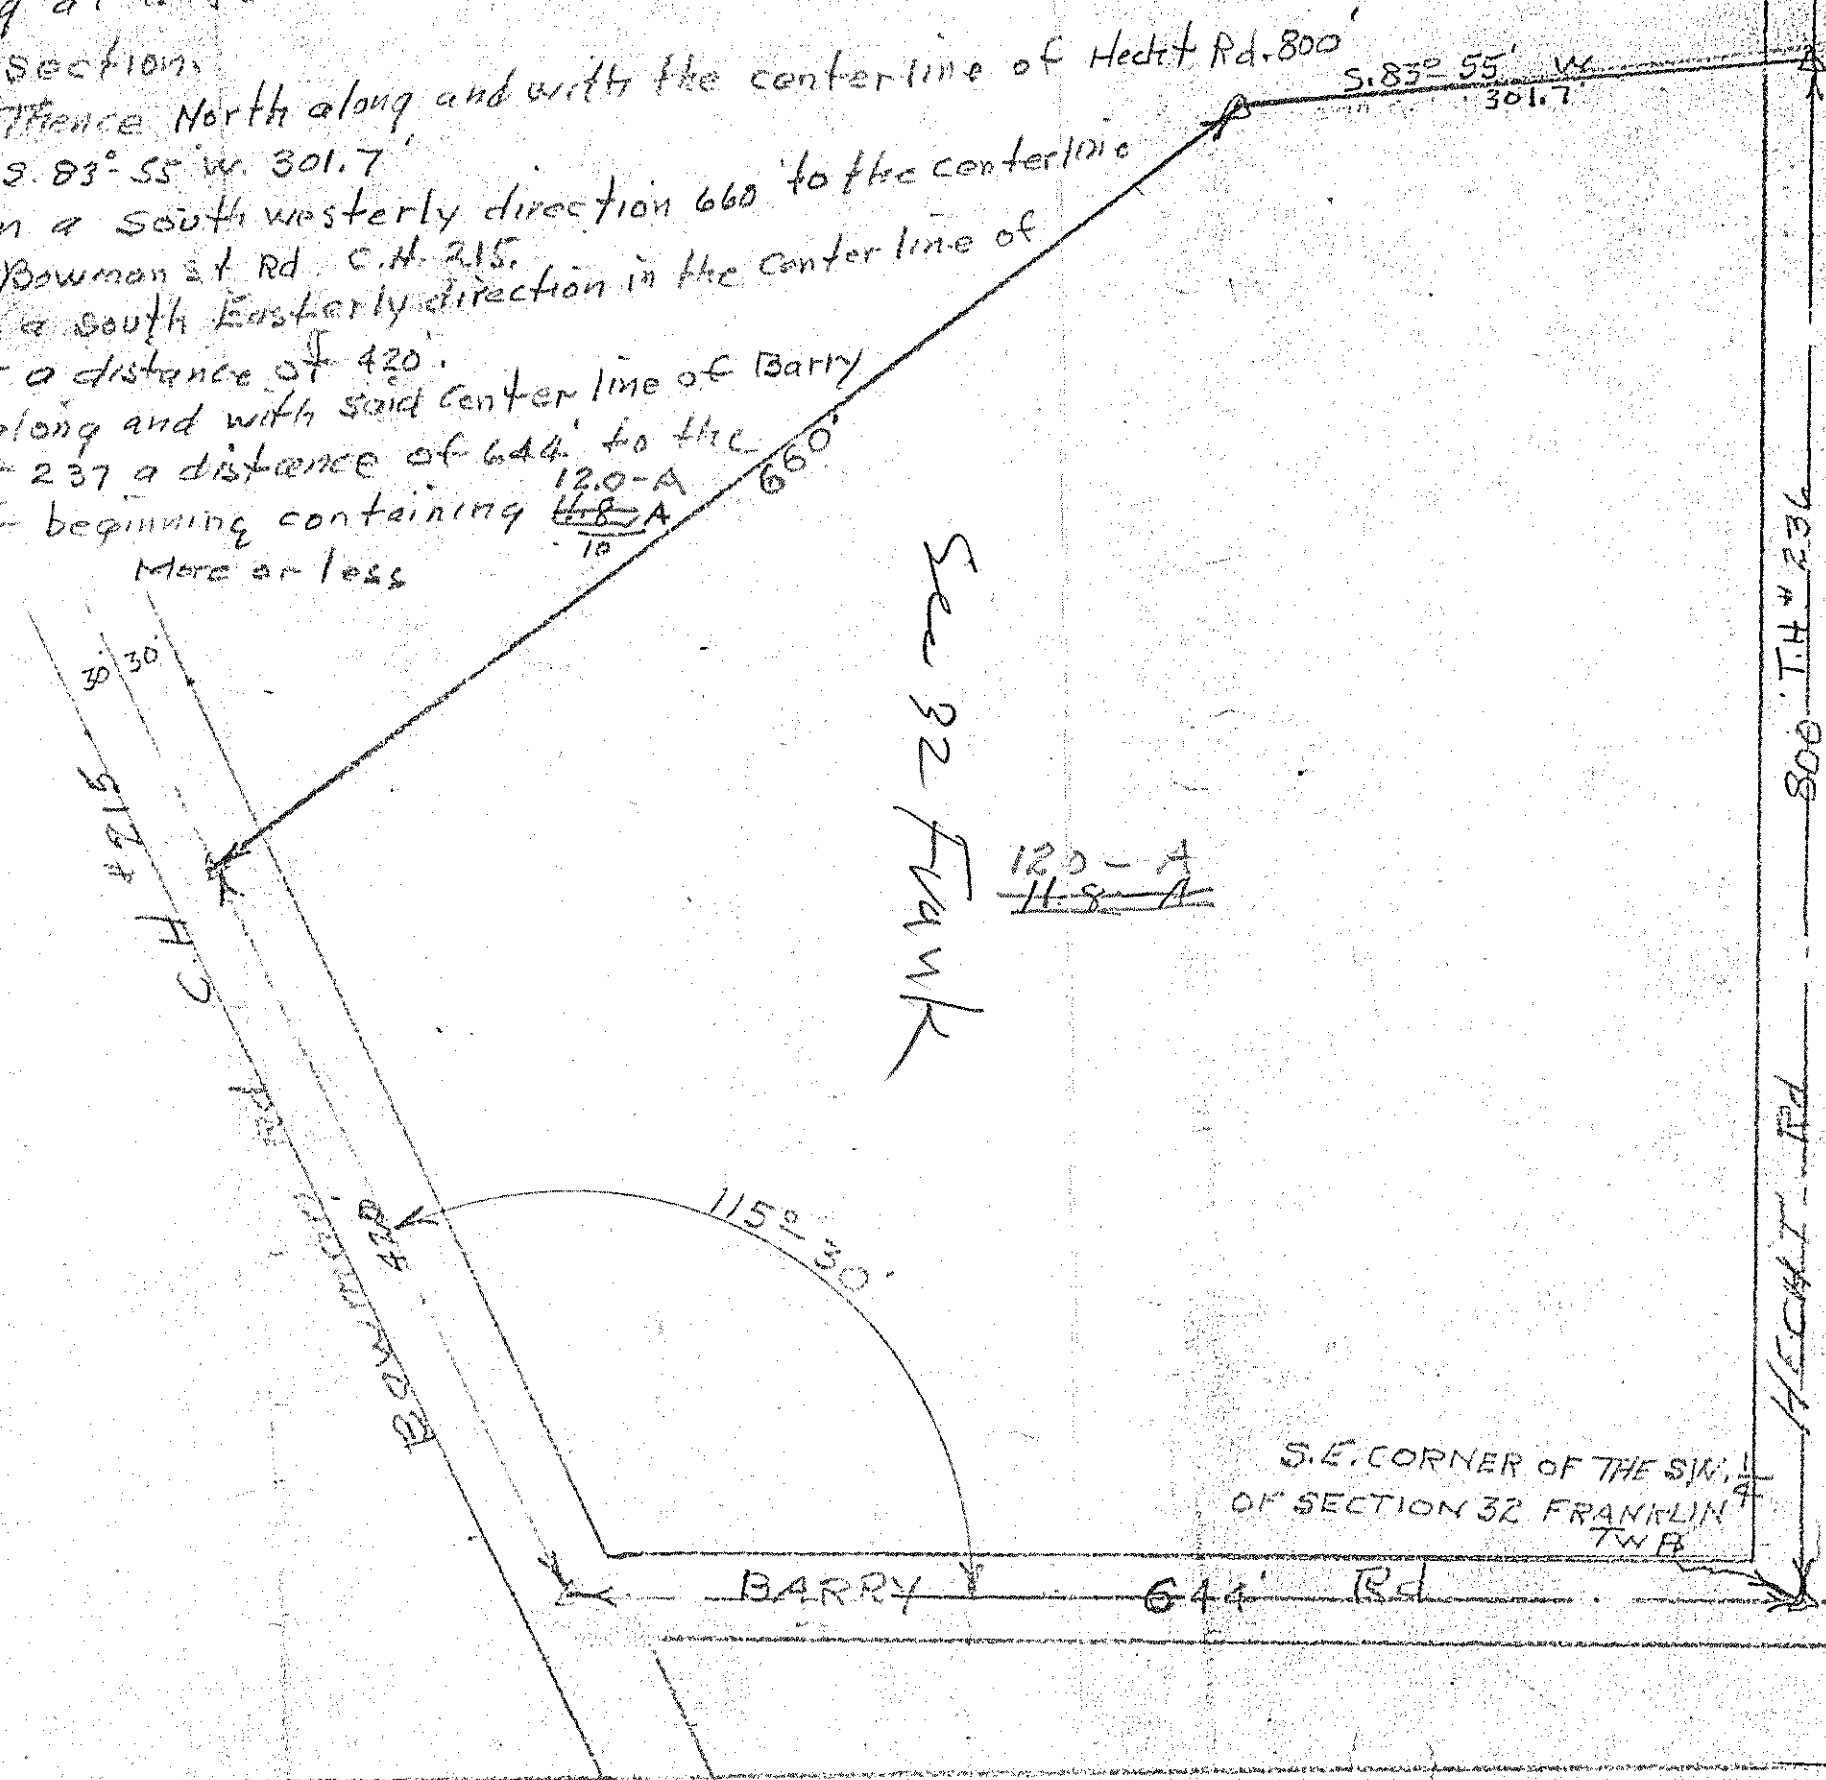 Section.
Thence North along and with the centerline of Hecht Rd. 800'
S. 83°-55' W. 301.7'
a South westerly direction 660' to the centerline
Bowman st Rd. C.H. 215.
a South Easterly direction in the Center line of
a distance of 420'.
along and with said Center line of Barry
237 a distance of 644' to the
12.0-A
beginning containing 11.8 A
10
More or less
S. 83° 55' W
301.7'
660'
30' 30'
Sec 32 Frank
12.0 - A
11.8 - A
800' T.H # 236
HECHT - Rd
Bowman Rd C.H #215
420
115° 30'
S.E. CORNER OF THE S.W. 1/4
OF SECTION 32 FRANKLIN
TWP.
BARRY 644' Rd